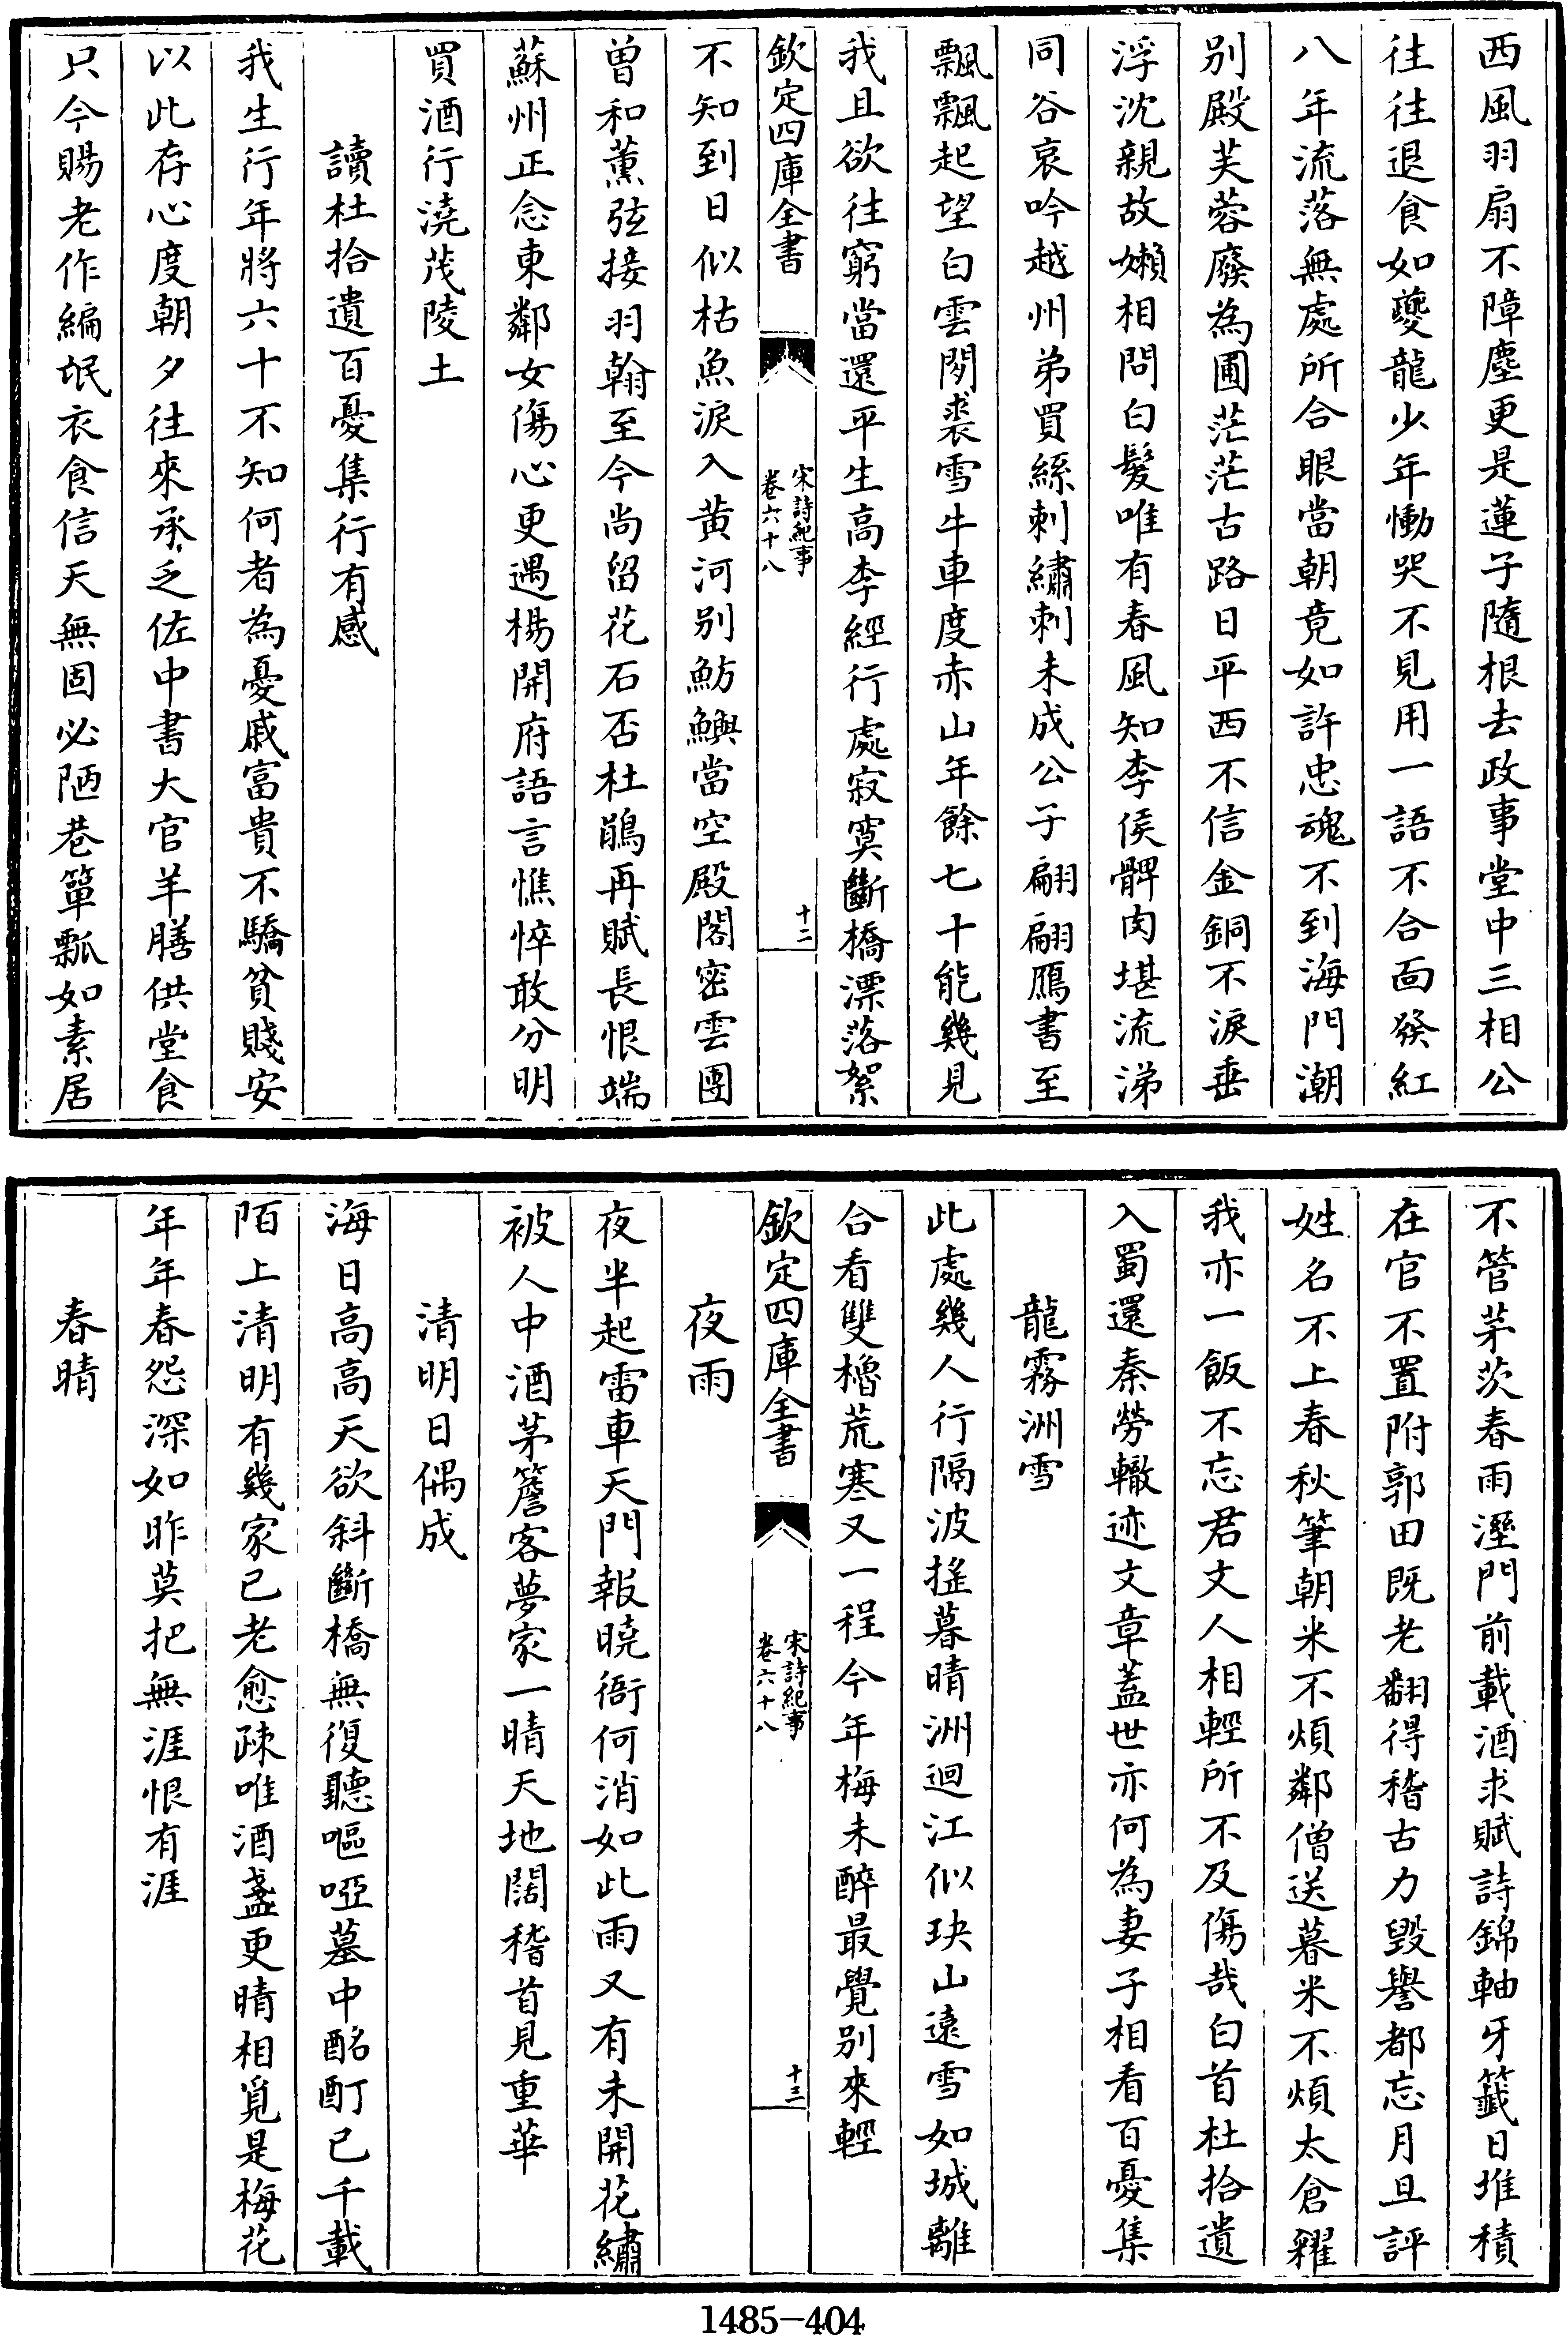 西風羽扇不障塵更是蓮子隨根去政事堂中三相公
往往退食如夔龍少年慟哭不見用一語不合面發紅
八年流落無處所合眼當朝竟如許忠魂不到海門潮
别殿芙蓉廢為圃茫茫古路日平西不信金銅不淚垂
浮沈親故嬾相問白髮唯有春風知李侯髀肉堪流涕
同谷哀吟越州弟買絲刺繡刺未成公子翩翩鴈書至
飄飄起望白雲閒裘雪牛車度赤山年餘七十能幾見
我且欲往窮當還平生高李經行處寂寞斷橋漂落絮
欽定四庫全書
宋詩紀事
卷六十八
十二
不知到日似枯魚淚入黄河别魴鱮當空殿閣密雲團
曾和薫弦接羽翰至今尚留花石否杜鵑再賦長恨端
蘇州正念東鄰女傷心更遇楊開府語言憔悴敢分明
買酒行澆茂陵土
讀杜拾遺百憂集行有感
我生行年將六十不知何者為憂戚富貴不驕貧賤安
以此存心度朝夕往來承乏佐中書大官羊膳供堂食
只今賜老作編氓衣食信天無固必陋巷簞瓢如素居
不管茅茨春雨溼門前載酒求賦詩錦軸牙籤日堆積
在官不置附郭田既老翻得稽古力毀譽都忘月旦評
姓名不上春秋筆朝米不煩鄰僧送暮米不煩太倉糴
我亦一飯不忘君文人相輕所不及傷哉白首杜拾遺
入蜀還秦勞轍迹文章蓋世亦何為妻子相看百憂集
龍霧洲雪
此處幾人行隔波搖暮晴洲迴江似玦山遠雪如城離
合看雙櫓荒寒又一程今年梅未醉最覺别來輕
欽定四庫全書
宋詩紀事
卷六十八
十三
夜雨
夜半起雷車天門報曉衙何消如此雨又有未開花繡
被人中酒茅簷客夢家一晴天地闊稽首見重華
清明日偶成
海日高高天欲斜斷橋無復聽嘔啞墓中酩酊已千載
陌上清明有幾家已老愈疎唯酒盞更晴相覓是梅花
年年春怨深如昨莫把無涯恨有涯
春晴
1485-404